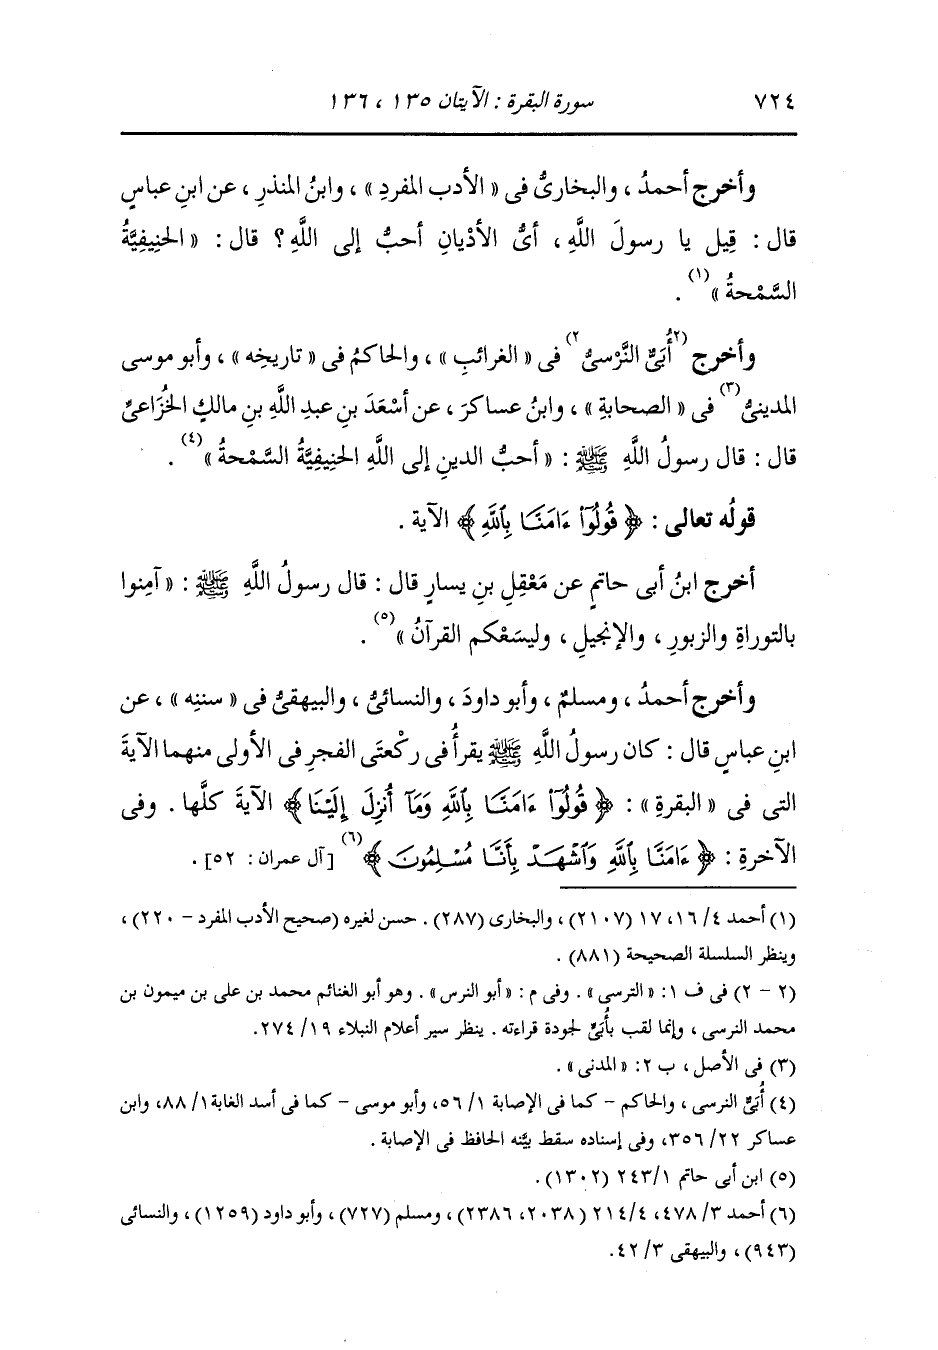 ٧٢٤ سورة البقرة : الآيتان ١٣٥ ، ١٣٦
وأخرج أحمدُ ، والبخارىُّ فى « الأدب المفردِ » ، وابنُ المنذرِ ، عن ابنِ عباسٍ
قال : قِيل يا رسولَ اللَّهِ ، أىُّ الأدْيانِ أحبُّ إلى اللَّهِ ؟ قال : « الحَنِيفِيَّةُ
السَّمْحةُ »(١) .
وأخرج (٢أُبَىٌّ النَّرْسىُّ٢) فى « الغرائبِ » ، والحاكمُ فى « تاريخِه » ، وأبو موسى
المدينىُّ(٣) فى « الصحابةِ » ، وابنُ عساكرَ ، عن أسْعَدَ بنِ عبدِ اللَّهِ بنِ مالكٍ الخُزَاعىِّ
قال : قال رسولُ اللَّهِ ﷺ : « أحبُّ الدينِ إلى اللَّهِ الحَنِيفِيَّةُ السَّمْحةُ »(٤) .
قولُه تعالى : ﴿ قُولُوٓا۟ ءَامَنَّا بِٱللَّهِ ﴾ الآية .
أخرج ابنُ أبى حاتمٍ عن مَعْقِلِ بنِ يسارٍ قال : قال رسولُ اللَّهِ ﷺ : « آمِنوا
بالتوراةِ والزبورِ ، والإنجيلِ ، وليسَعْكم القرآنُ »(٥) .
وأخرج أحمدُ ، ومسلمٌ ، وأبو داودَ ، والنسائىُّ ، والبيهقىُّ فى « سننِه » ، عن
ابنِ عباسٍ قال : كان رسولُ اللَّهِ ﷺ يقرأُ فى ركْعتَى الفجرِ فى الأولى منهما الآيةَ
التى فى « البقرةِ » : ﴿ قُولُوٓا۟ ءَامَنَّا بِٱللَّهِ وَمَآ أُنزِلَ إِلَيْنَا ﴾ الآيةَ كلَّها . وفى
الآخرةِ : ﴿ ءَامَنَّا بِٱللَّهِ وَٱشْهَدْ بِأَنَّا مُسْلِمُونَ ﴾(٦) [آل عمران : ٥٢] .
(١) أحمد ٤/ ١٦، ١٧ (٢١٠٧) ، والبخارى (٢٨٧) . حسن لغيره (صحيح الأدب المفرد – ٢٢٠) ،
وينظر السلسلة الصحيحة (٨٨١) .
(٢ – ٢) فى ف ١: « الترسى » . وفى م : « أبو النرس » . وهو أبو الغنائم محمد بن على بن ميمون بن
محمد النرسى ، وإنما لقب بأُبَىٍّ لجودة قراءته . ينظر سير أعلام النبلاء ١٩/ ٢٧٤.
(٣) فى الأصل ، ب ٢: « المدنى » .
(٤) أُبَىٌّ النرسى ، والحاكم – كما فى الإصابة ١/ ٥٦، وأبو موسى – كما فى أسد الغابة ١/ ٨٨، وابن
عساكر ٢٢/ ٣٥٦، وفى إسناده سقط بيَّنه الحافظ فى الإصابة .
(٥) ابن أبى حاتم ١/ ٢٤٣ (١٣٠٢) .
(٦) أحمد ٣/ ٤٧٨، ٤/ ٢١٤ (٢٠٣٨، ٢٣٨٦) ، ومسلم (٧٢٧) ، وأبو داود (١٢٥٩) ، والنسائى
(٩٤٣) ، والبيهقى ٣/ ٤٢.